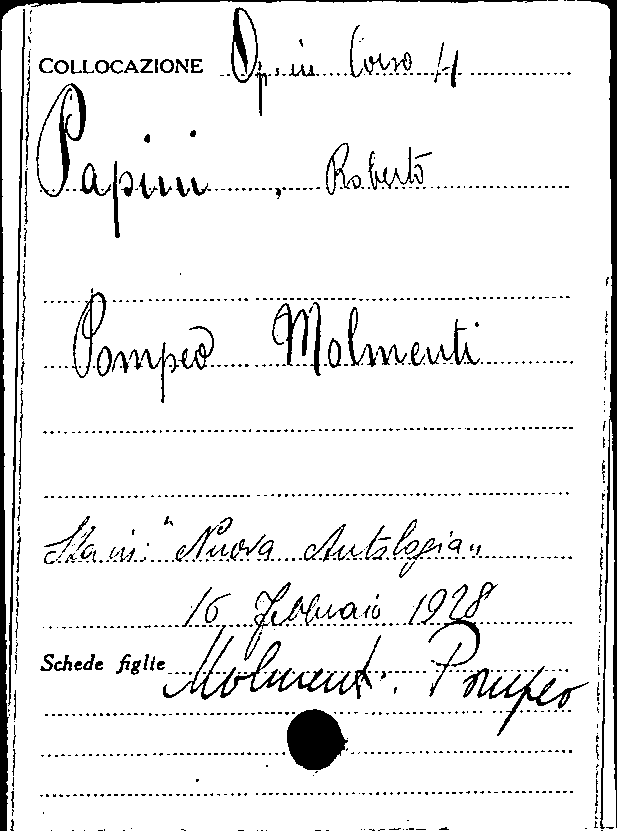 COLLOCAZIONE Op. in Corso 4
Papini, Roberto
Pompeo Molmenti
Sta in: "Nuova Antologia"
16 Febbraio 1928
Schede figlie Molmenti Pompeo